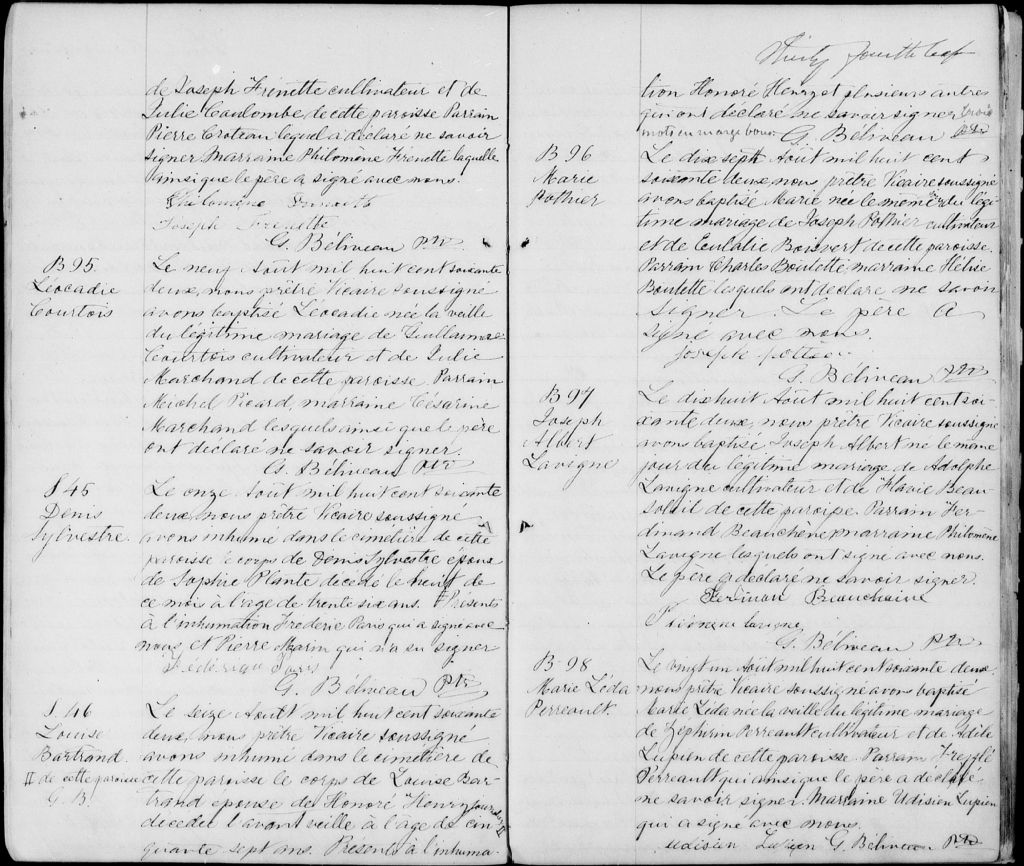 de Joseph Frenette cultivateur et de
Julie Coulombe de cette paroisse Parrain
Pierre Croteau lequel a déclaré ne savoir
signer Marraine Philomène Frenette laquelle
ainsi que le père a signé avec nous.
Philomène
Joseph Frenette
G. Béliveau Ptr
B 95
Léocadie
Courtois
Le neuf Août mil huit cent soixante
deux, nous prêtre Vicaire soussigné
avons baptisé Léocadie née la veille
du légitime mariage de Guillaume
Courtois cultivateur et de Julie
Marchand de cette paroisse Parrain
Michel Picard, marraine Césarine
Marchand lesquels ainsi que le père
ont déclaré ne savoir signer.
G. Béliveau Ptr
S 45
Denis
Sylvestre.
Le onze Août mil huit cent soixante
deux, nous prêtre Vicaire soussigné
avons inhumé dans le cimetière de cette
paroisse le corps de Denis Sylvestre époux
de Sophie Plante décédé le neuf de
ce mois à l'age de trente six ans. Présents
à l'inhumation Frederic Paris qui a signé avec
nous, et Pierre Marin qui n'a su signer
Frédérique Paris
G. Béliveau Ptr
S. 46
Louise
Bartrand.
# de cette paroisse
G. B.
Le seize Août mil huit cent soixante
deux, nous prêtre Vicaire soussigné
avons inhumé dans le cimetière de
cette paroisse le corps de Louise Bar-
trand épouse de Honoré Henry
décédée l'avant veille à l'âge de cin
quante sept ans. Présents à l'inhuma-
Thirty fourth leaf
tion Honoré Henry et plusieurs autres
qui ont déclaré ne savoir signer trois
mots en marge bons. G. Béliveau Ptr
B 96
Marie
Pothier
Le dix sept Août mil huit cent
soixante deux, nous prêtre Vicaire soussigné
avons baptisé Marie née le même du légi-
time mariage de Joseph Pothier cultivateur
et de Eulalie Boisvert de cette paroisse.
Parrain Charles Boutette, marraine Hélise
Boutette lesquels ont déclaré ne savoir
signer. Le père a
signé avec nous.
joseph pottier
G. Béliveau Ptr
B 97
Joseph
Albert
Lavigne
Le dix huit Août mil huit cent soi-
xante deux, nous prêtre Vicaire soussigné
avons baptisé Joseph Albert né le même
jour du légitime mariage de Adolphe
Lavigne cultivateur et de Flavie Beau-
soleil de cette paroisse. Parrain Fer-
dinand Beauchêne, marraine Philomène
Lavigne lesquels ont signé avec nous.
Le père a déclaré ne savoir signer.
Beauchaine
lavigne
G. Béliveau Ptr
B 98
Marie Léda
Perreault.
Le vingt un Août mil huit cent soixante deux
nous prêtre Vicaire soussigné avons baptisé
Marie Léda née la veille du légitime mariage
de Zéphirin Perreault cultivateur et de Adèle
Lupien de cette paroisse. Parrain Trefflé
Perreault qui ainsi que le père a déclaré
ne savoir signer. Marraine Udisien Lupien
qui a signé avec nous.
Udisien Lupien G. Béliveau Ptr